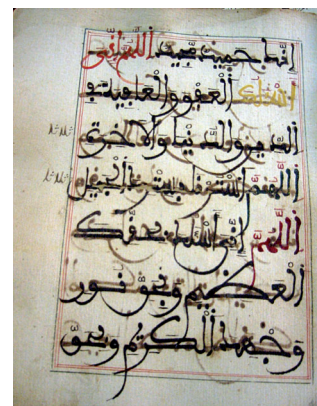 إنك حميد مجيد اللهم إني
أسألك العفو والعافية في
الدين والدنيا والآخرة
ثلاثا
اللهم استرنا بسترك الجميل
ثلاثا
اللهم إني أسألك بحقك
العظيم وبحق نور
وجهك الكريم وبحق